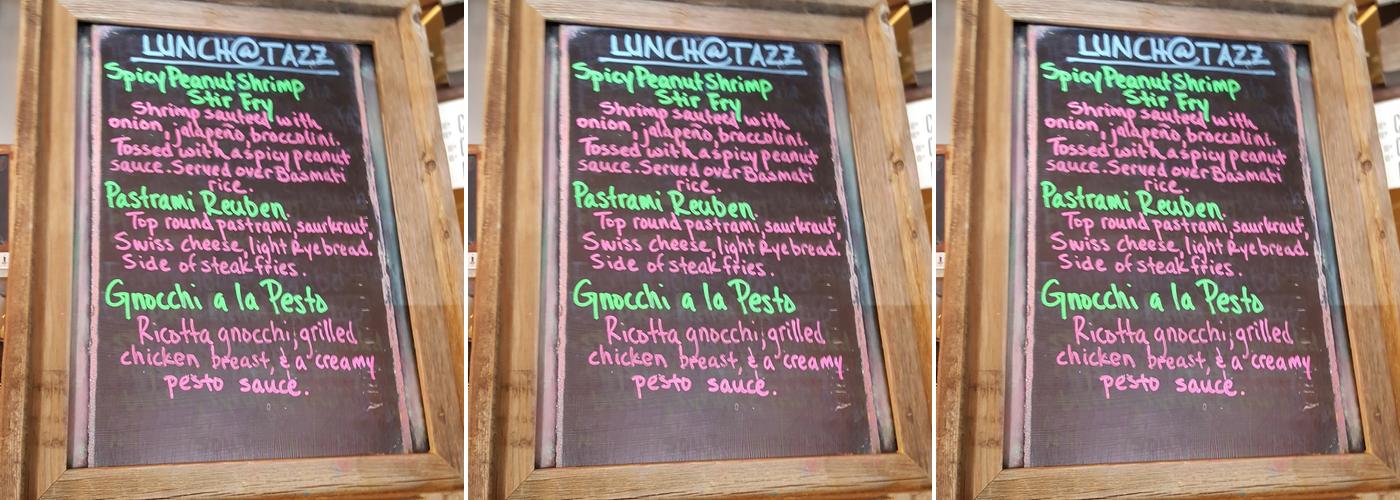 LUNCH@TAZZ
Spicy Peanut Shrimp
Stir Fry
Shrimp sauteed with
onion, jalapeño, broccolini.
Tossed with a spicy peanut
sauce. Served over Basmati
rice.
Pastrami Reuben.
Top round pastrami, saurkraut,
Swiss cheese, light Rye bread.
Side of steak fries.
Gnocchi a la Pesto
Ricotta gnocchi, grilled
chicken breast, & a creamy
pesto sauce.
LUNCH@TAZZ
Spicy Peanut Shrimp
Stir Fry
Shrimp sauteed with
onion, jalapeño, broccolini.
Tossed with a spicy peanut
sauce. Served over Basmati
rice.
Pastrami Reuben.
Top round pastrami, saurkraut,
Swiss cheese, light Rye bread.
Side of steak fries.
Gnocchi a la Pesto
Ricotta gnocchi, grilled
chicken breast, & a creamy
pesto sauce.
LUNCH@TAZZ
Spicy Peanut Shrimp
Stir Fry
Shrimp sauteed with
onion, jalapeño, broccolini.
Tossed with a spicy peanut
sauce. Served over Basmati
rice.
Pastrami Reuben.
Top round pastrami, saurkraut,
Swiss cheese, light Rye bread.
Side of steak fries.
Gnocchi a la Pesto
Ricotta gnocchi, grilled
chicken breast, & a creamy
pesto sauce.